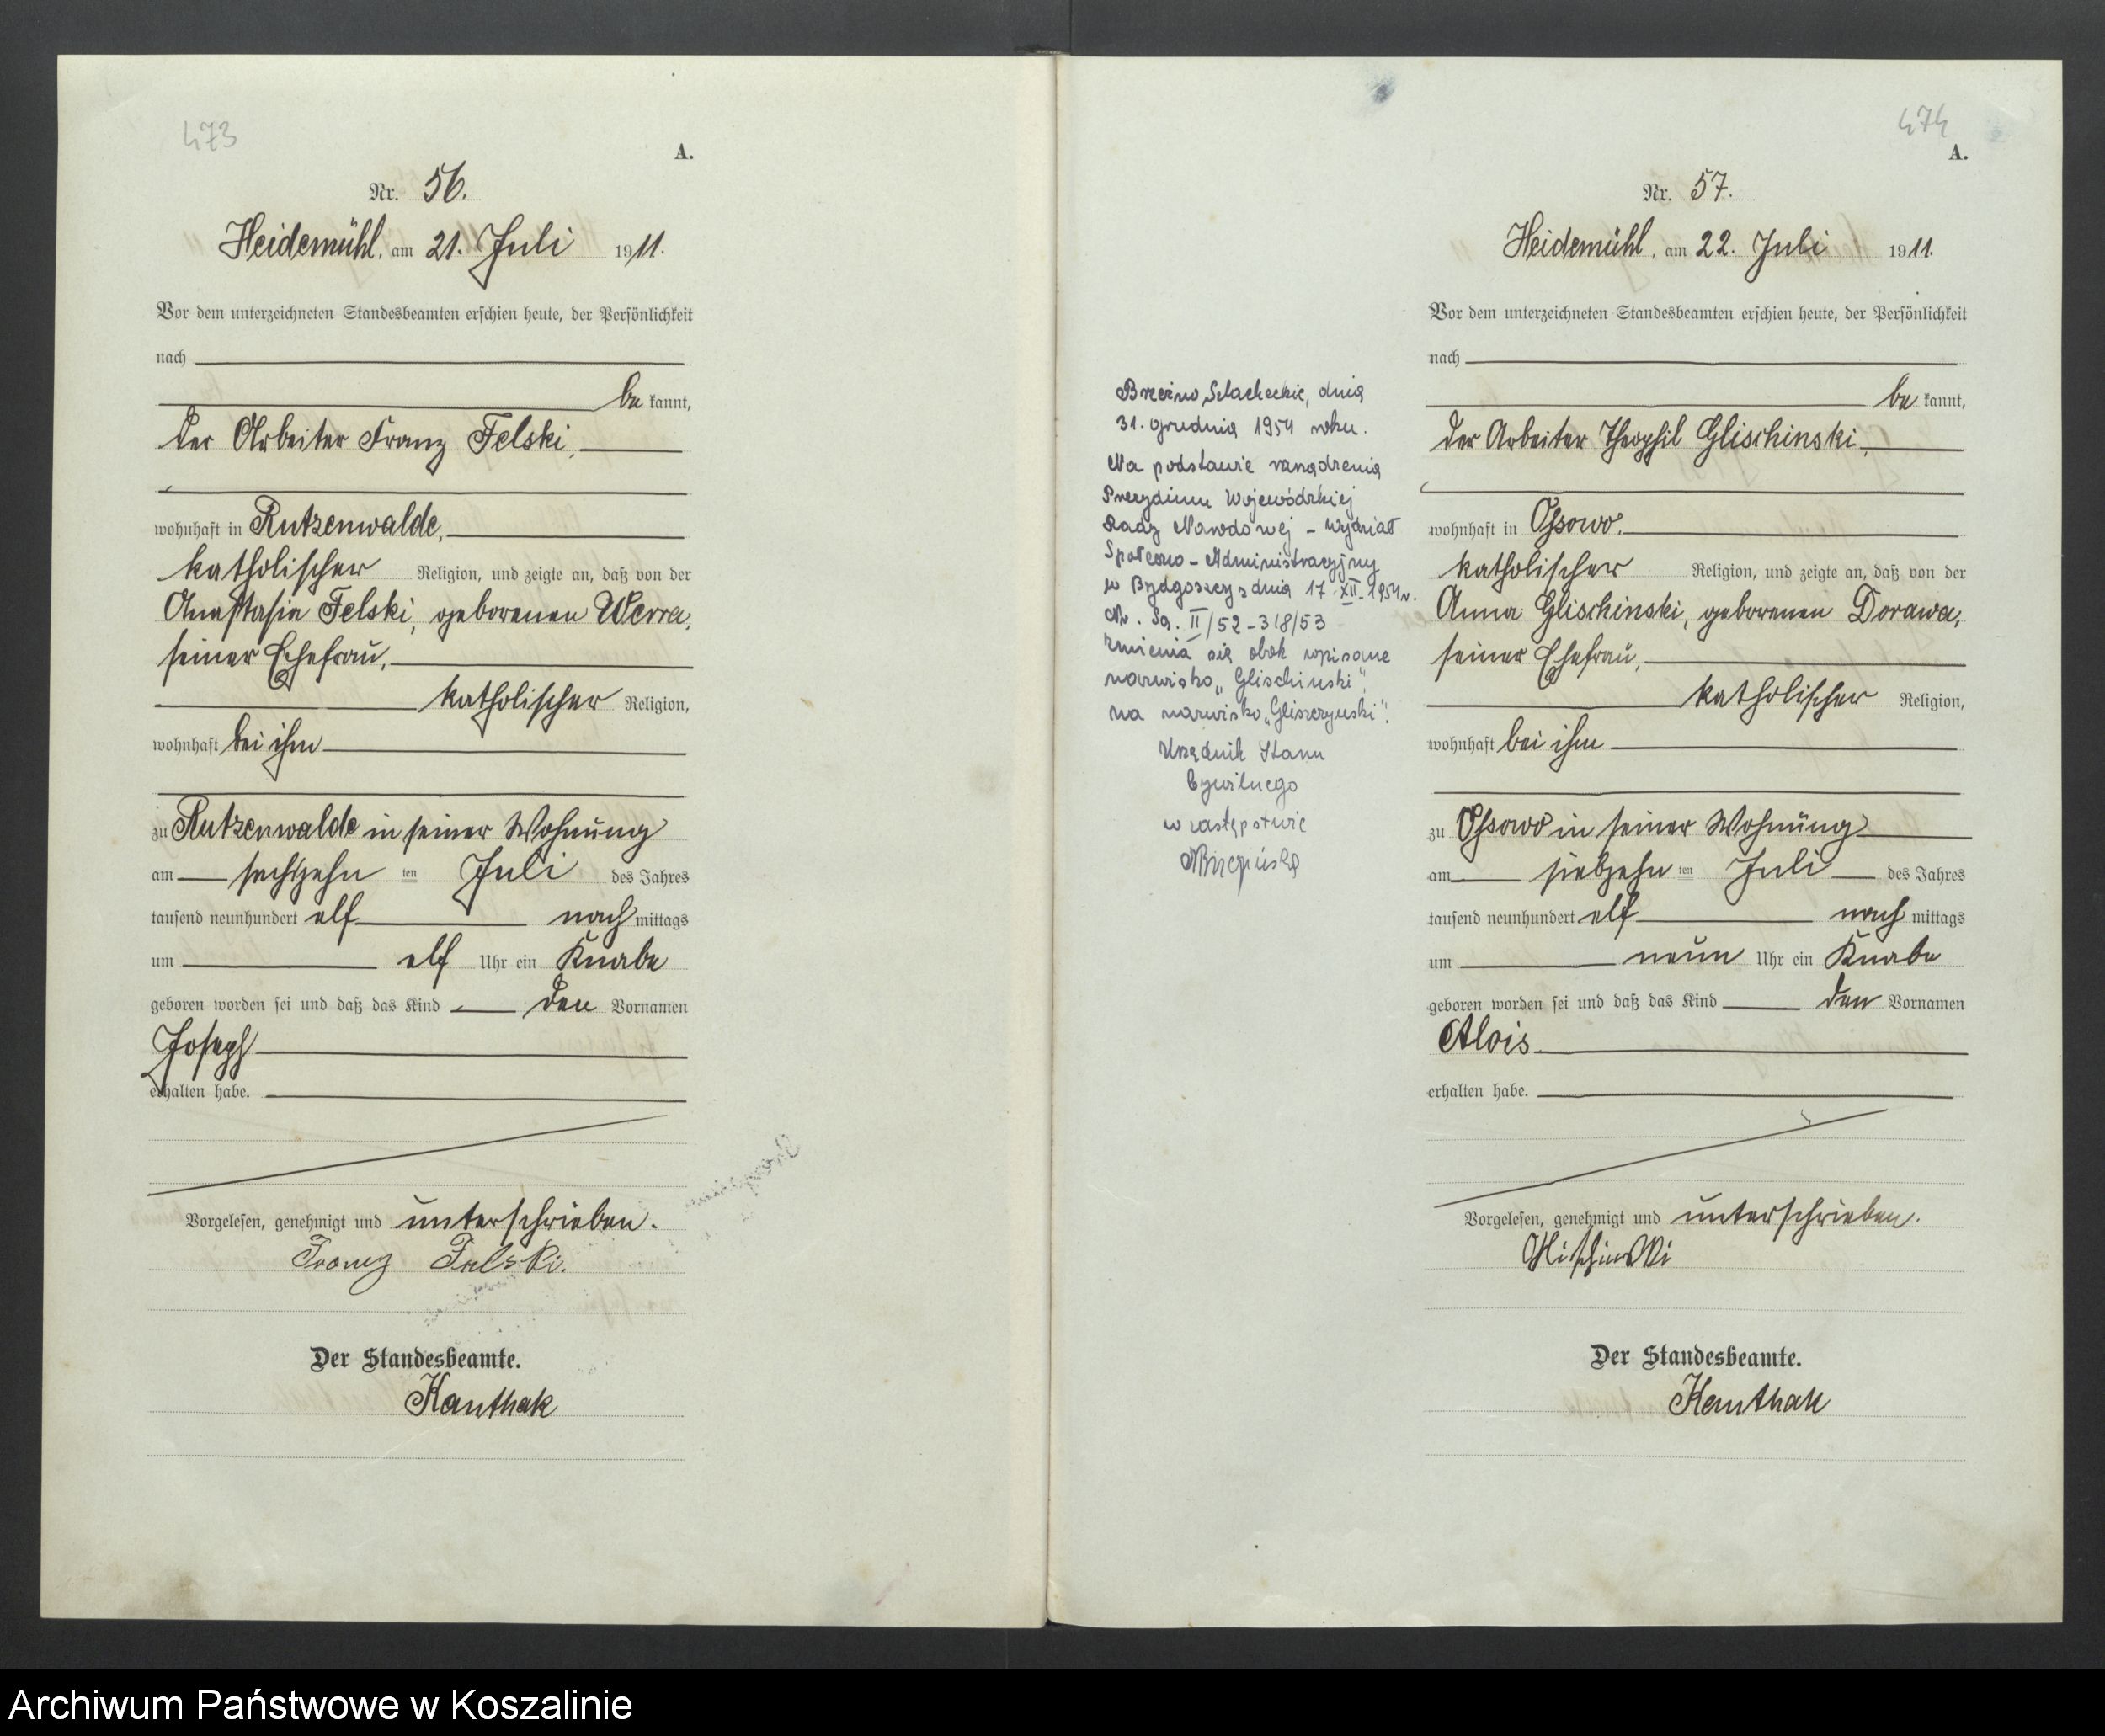 473
A.
Nr. 56.
Heidemühl, am 21. Juli 1911.
Vor dem unterzeichneten Standesbeamten erschien heute, der Persönlichkeit
nach
be kannt,
der Arbeiter Franz Felski,
wohnhaft in Rutzenwalde,
katholischer Religion, und zeigte an, daß von der
Anastasia Felski, geborenen Werra,
seiner Ehefrau,
katholischer Religion,
wohnhaft bei ihm
zu Rutzenwalde in seiner Wohnung
am sechszehn ten Juli des Jahres
tausend neunhundert elf nach mittags
um elf Uhr ein Knabe
geboren worden sei und daß das Kind den Vornamen
Joseph
erhalten habe.
Vorgelesen, genehmigt und unterschrieben.
Franz Felski.
Der Standesbeamte.
Kanthak
474
A.
Nr. 57.
Heidemühl, am 22. Juli 1911.
Vor dem unterzeichneten Standesbeamten erschien heute, der Persönlichkeit
nach
be kannt,
der Arbeiter Theophil Glischinski,
wohnhaft in Ossowo,
katholischer Religion, und zeigte an, daß von der
Anna Glischinski, geborenen Dorawa,
seiner Ehefrau,
katholischer Religion,
wohnhaft bei ihm
zu Ossowo in seiner Wohnung
am siebzehn ten Juli des Jahres
tausend neunhundert elf nach mittags
um neun Uhr ein Knabe
geboren worden sei und daß das Kind den Vornamen
Alois
erhalten habe.
Vorgelesen, genehmigt und unterschrieben.
Glischinski
Der Standesbeamte.
Kanthak
Brzeźno Szlacheckie, dnia
31. grudnia 1954 roku.
Na podstawie zarządzenia
Prezydium Wojewódzkiej
Rady Narodowej - Wydział
Społeczno - Administracyjny
w Bydgoszczy z dnia 17.XII.1954 r.
Nr. Sa. II/52-318/53
zmienia się obok wpisane
nazwisko „Glischinski",
na nazwisko „Gliszczynski".
Urzędnik Stanu
Cywilnego
w zastępstwie
Archiwum Państwowe w Koszalinie